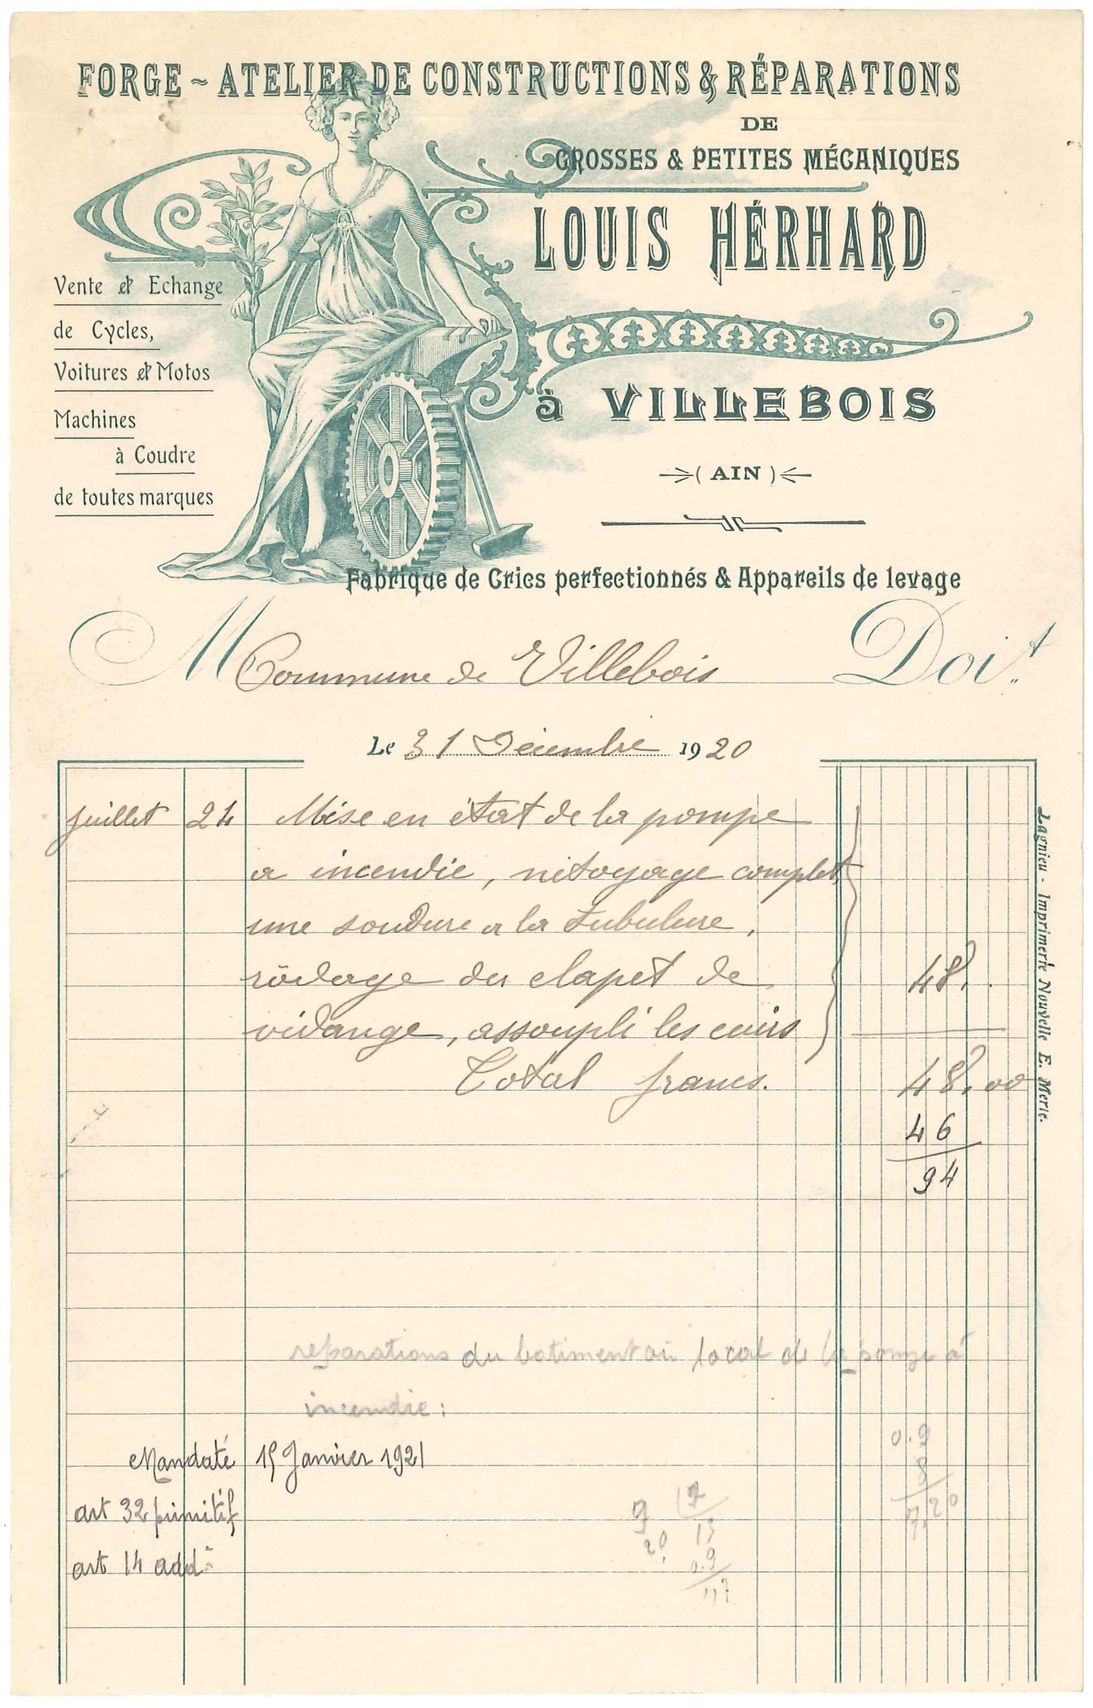 FORGE ~ ATELIER DE CONSTRUCTIONS & RÉPARATIONS
DE
GROSSES & PETITES MÉCANIQUES
LOUIS HÉRHARD
à VILLEBOIS
(AIN)
Vente et Echange
de Cycles,
Voitures et Motos
Machines
à Coudre
de toutes marques
Fabrique de Crics perfectionnés & Appareils de levage
M Commune de Villebois Doit
Le 31 Décembre 1920
juillet 24 Mise en état de la pompe
a incendie, nitoyage complet,
une soudure a la tubulure,
rôdage du clapet de 48.
vidange, assoupli les cuirs
Total francs. 48.00
46
94
reparations du batiment ou local de la pompe à
incendie :
Mandaté 15 Janvier 1921
art 32 primitif
art 14 add
Lagnieu - Imprimerie Nouvelle E. Merle.